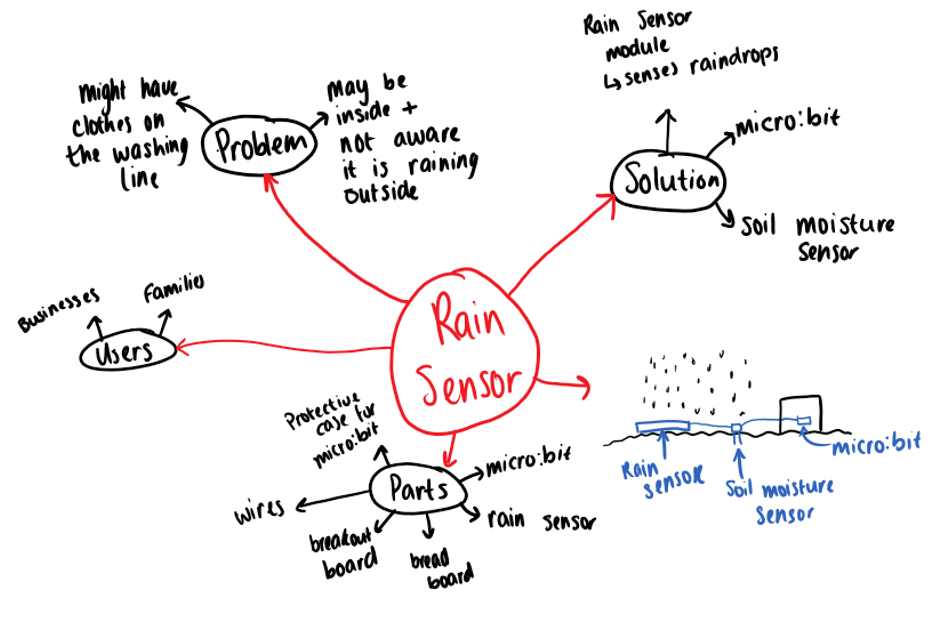 Rain
Sensor
Problem
might have
clothes on
the washing
line
may be
inside +
not aware
it is raining
outside
Solution
Rain Sensor
module
↳ senses raindrops
micro:bit
soil moisture
sensor
Users
Businesses
Families
Parts
Protective
case for
micro:bit
micro:bit
rain sensor
bread
board
breakout
board
wires
Rain
sensor
Soil moisture
sensor
micro:bit